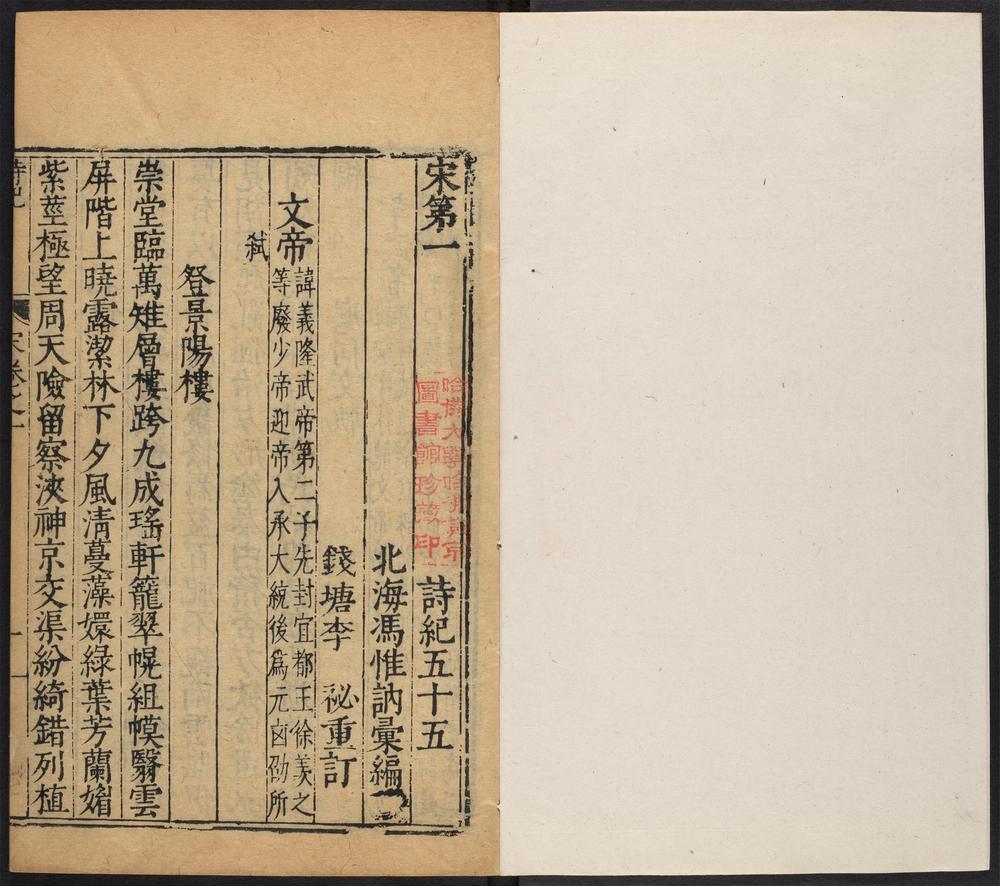 宋第一 詩紀五十五
北海馮惟訥彙編
錢塘李 祕重訂
文帝 諱義隆武帝第二子先封宜都王徐羨之
等廢少帝迎帝入承大統後爲元凶劭所
弒
登景陽樓
崇堂臨萬雉層樓跨九成瑤軒籠翠幌組幙翳雲
屏階上曉露潔林下夕風清蔓藻嬛綠葉芳蘭媚
紫莖極望周天險留察浹神京交渠紛綺錯列植
詩紀 宋卷之一 一
哈佛大學哈佛燕京
圖書館珍藏印